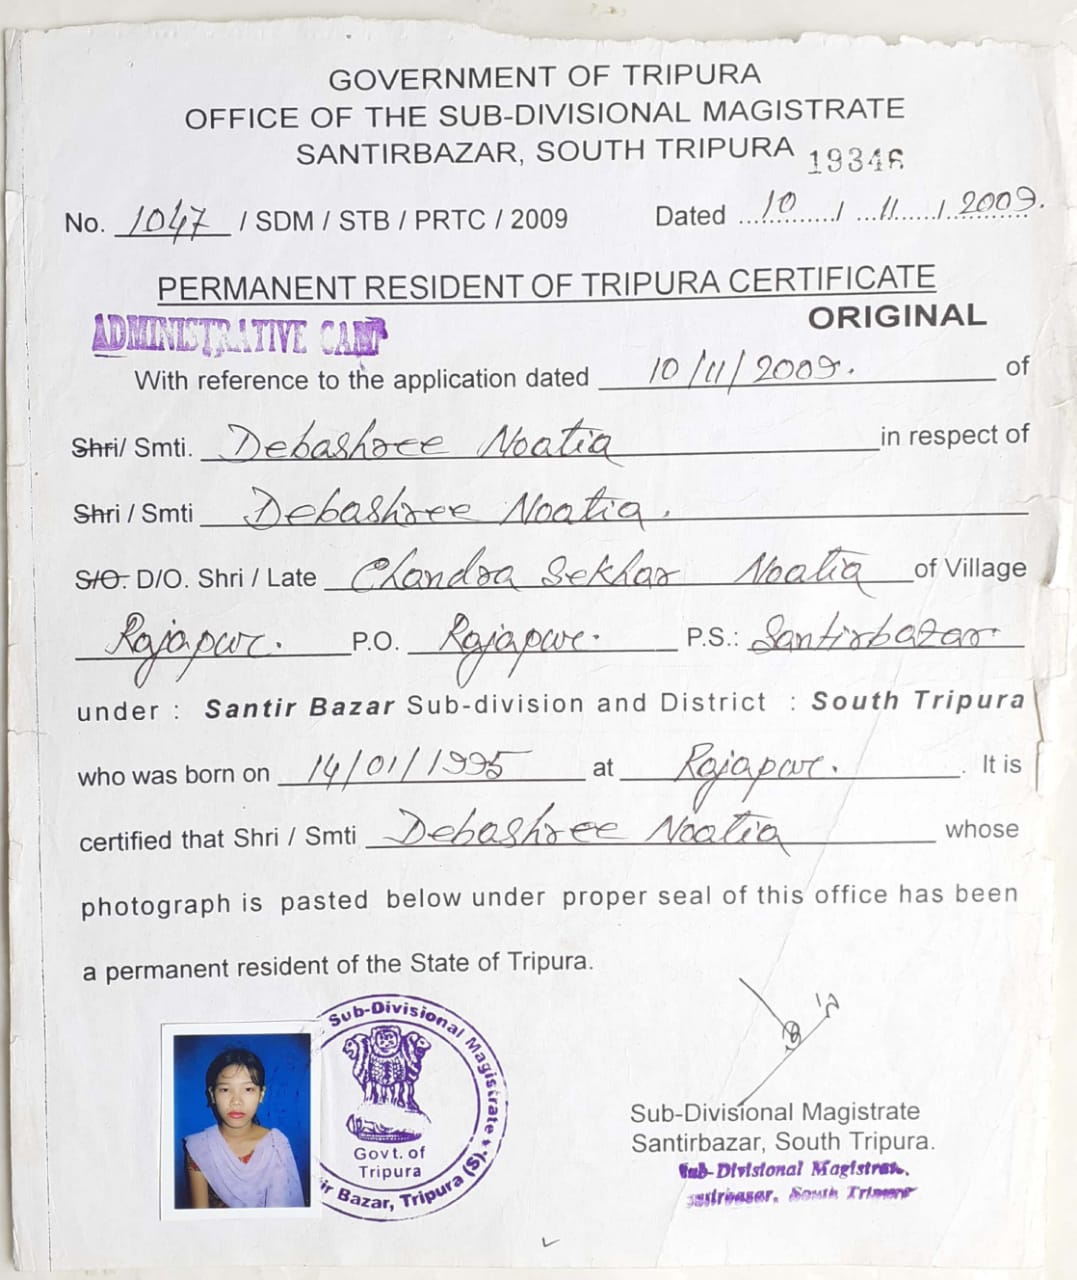 GOVERNMENT OF TRIPURA
OFFICE OF THE SUB-DIVISIONAL MAGISTRATE
SANTIRBAZAR, SOUTH TRIPURA 19346
No. 1047 / SDM / STB / PRTC / 2009 Dated 10 / 11 / 2009.
PERMANENT RESIDENT OF TRIPURA CERTIFICATE
ORIGINAL
ADMINISTRATIVE CAMP
With reference to the application dated 10/11/2009. of
Shri/ Smti. Debashree Noatia in respect of
Shri / Smti Debashree Noatia.
S/O. D/O. Shri / Late Chandra Sekhar Noatia of Village
Rajapur. P.O. Rajapur. P.S.: Santirbazar
under : Santir Bazar Sub-division and District : South Tripura
who was born on 14/01/1995 at Rajapur. It is
certified that Shri / Smti Debashree Noatia whose
photograph is pasted below under proper seal of this office has been
a permanent resident of the State of Tripura.
Sub-Divisional Magistrate
Govt. of
Tripura
ir Bazar, Tripura (S)
Sub-Divisional Magistrate
Santirbazar, South Tripura.
Sub-Divisional Magistrate
South Tripura